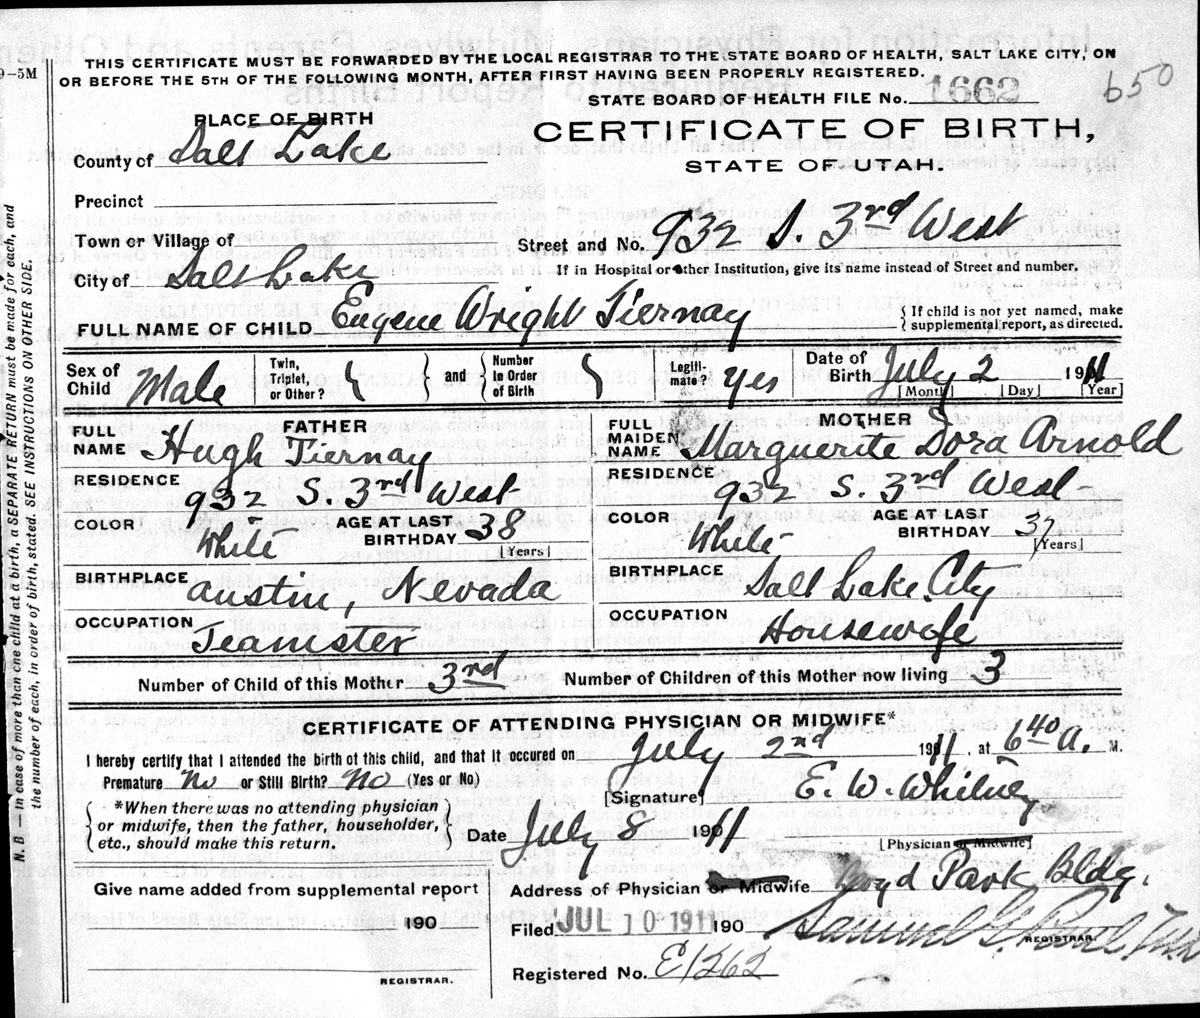 9-5M
THIS CERTIFICATE MUST BE FORWARDED BY THE LOCAL REGISTRAR TO THE STATE BOARD OF HEALTH, SALT LAKE CITY, ON
OR BEFORE THE 5TH OF THE FOLLOWING MONTH, AFTER FIRST HAVING BEEN PROPERLY REGISTERED.
STATE BOARD OF HEALTH FILE No. 1662 650
PLACE OF BIRTH
CERTIFICATE OF BIRTH,
County of Salt Lake
STATE OF UTAH.
Precinct
Town or Village of
Street and No. 932 S. 3rd West
City of Salt Lake
If in Hospital or other Institution, give its name instead of Street and number.
FULL NAME OF CHILD Eugene Wright Tiernay
{ If child is not yet named, make supplemental report, as directed.
Sex of Child Male
Twin, Triplet, or Other? { } and { Number in Order of Birth }
Legiti-mate? Yes
Date of Birth July 2 1911
[Month] [Day] [Year]
FATHER
FULL NAME Hugh Tiernay
RESIDENCE 932 S. 3rd West
COLOR White
AGE AT LAST BIRTHDAY 38
[Years]
BIRTHPLACE Austin, Nevada
OCCUPATION Teamster
MOTHER
FULL MAIDEN NAME Marguerite Dora Arnold
RESIDENCE 932 S. 3rd West
COLOR White
AGE AT LAST BIRTHDAY 37
[Years]
BIRTHPLACE Salt Lake City
OCCUPATION Housewife
Number of Child of this Mother 3rd Number of Children of this Mother now living 3
CERTIFICATE OF ATTENDING PHYSICIAN OR MIDWIFE*
I hereby certify that I attended the birth of this child, and that it occured on July 2nd 1911, at 6 40 a. M.
Premature No or Still Birth? No (Yes or No)
[Signature] E. W. Whitney
{ *When there was no attending physician
or midwife, then the father, householder,
etc., should make this return. }
Date July 8 1911
[Physician or Midwife]
Address of Physician or Midwife Boyd Park Bldg.
Give name added from supplemental report
190
REGISTRAR.
Filed JUL 10 1911 190
REGISTRAR.
Registered No. E1262
N. B.—In case of more than one child at a birth, a SEPARATE RETURN must be made for each, and
the number of each, in order of birth, stated. SEE INSTRUCTIONS ON OTHER SIDE.